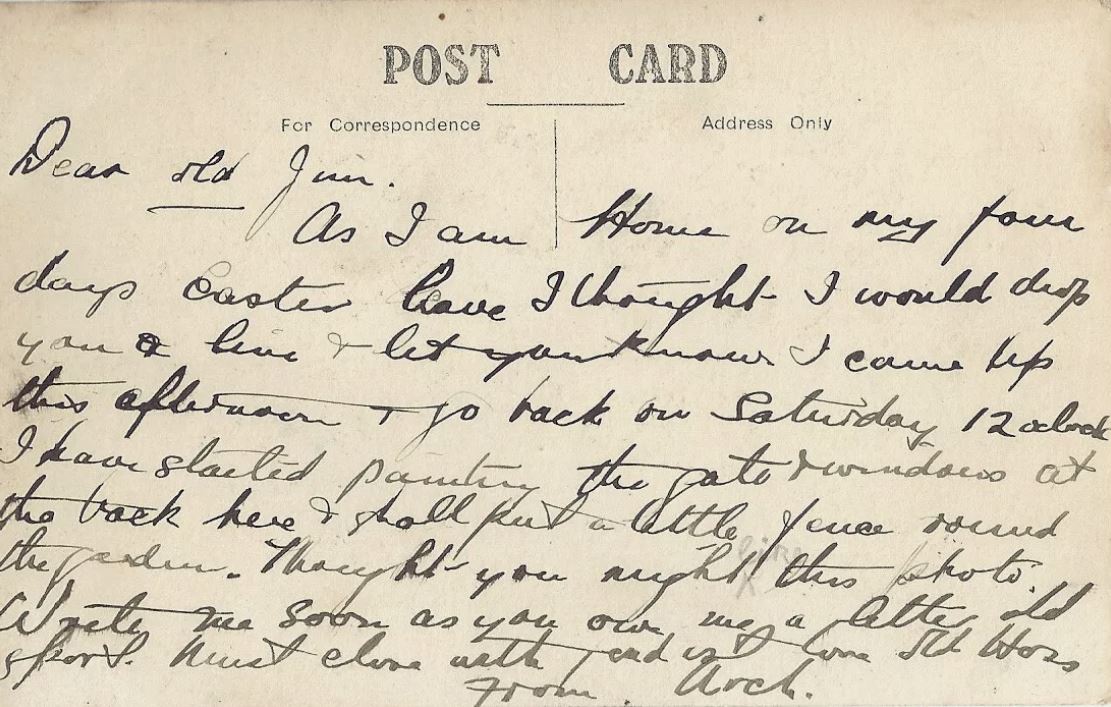 POST CARD
For Correspondence Address Only
Dear old Jim.
As I am Home on my four
days easter leave I thought I would drop
you a line & let you know I came up
this afternoon & go back on Saturday 12 oclock
I have started painting the gate & windows at
the back here & shall put a little fence round
the garden. Thought you might like this photo.
Write me soon as you owe me a letter old
sport. Must close with fondest love old Hoss
From Arch.